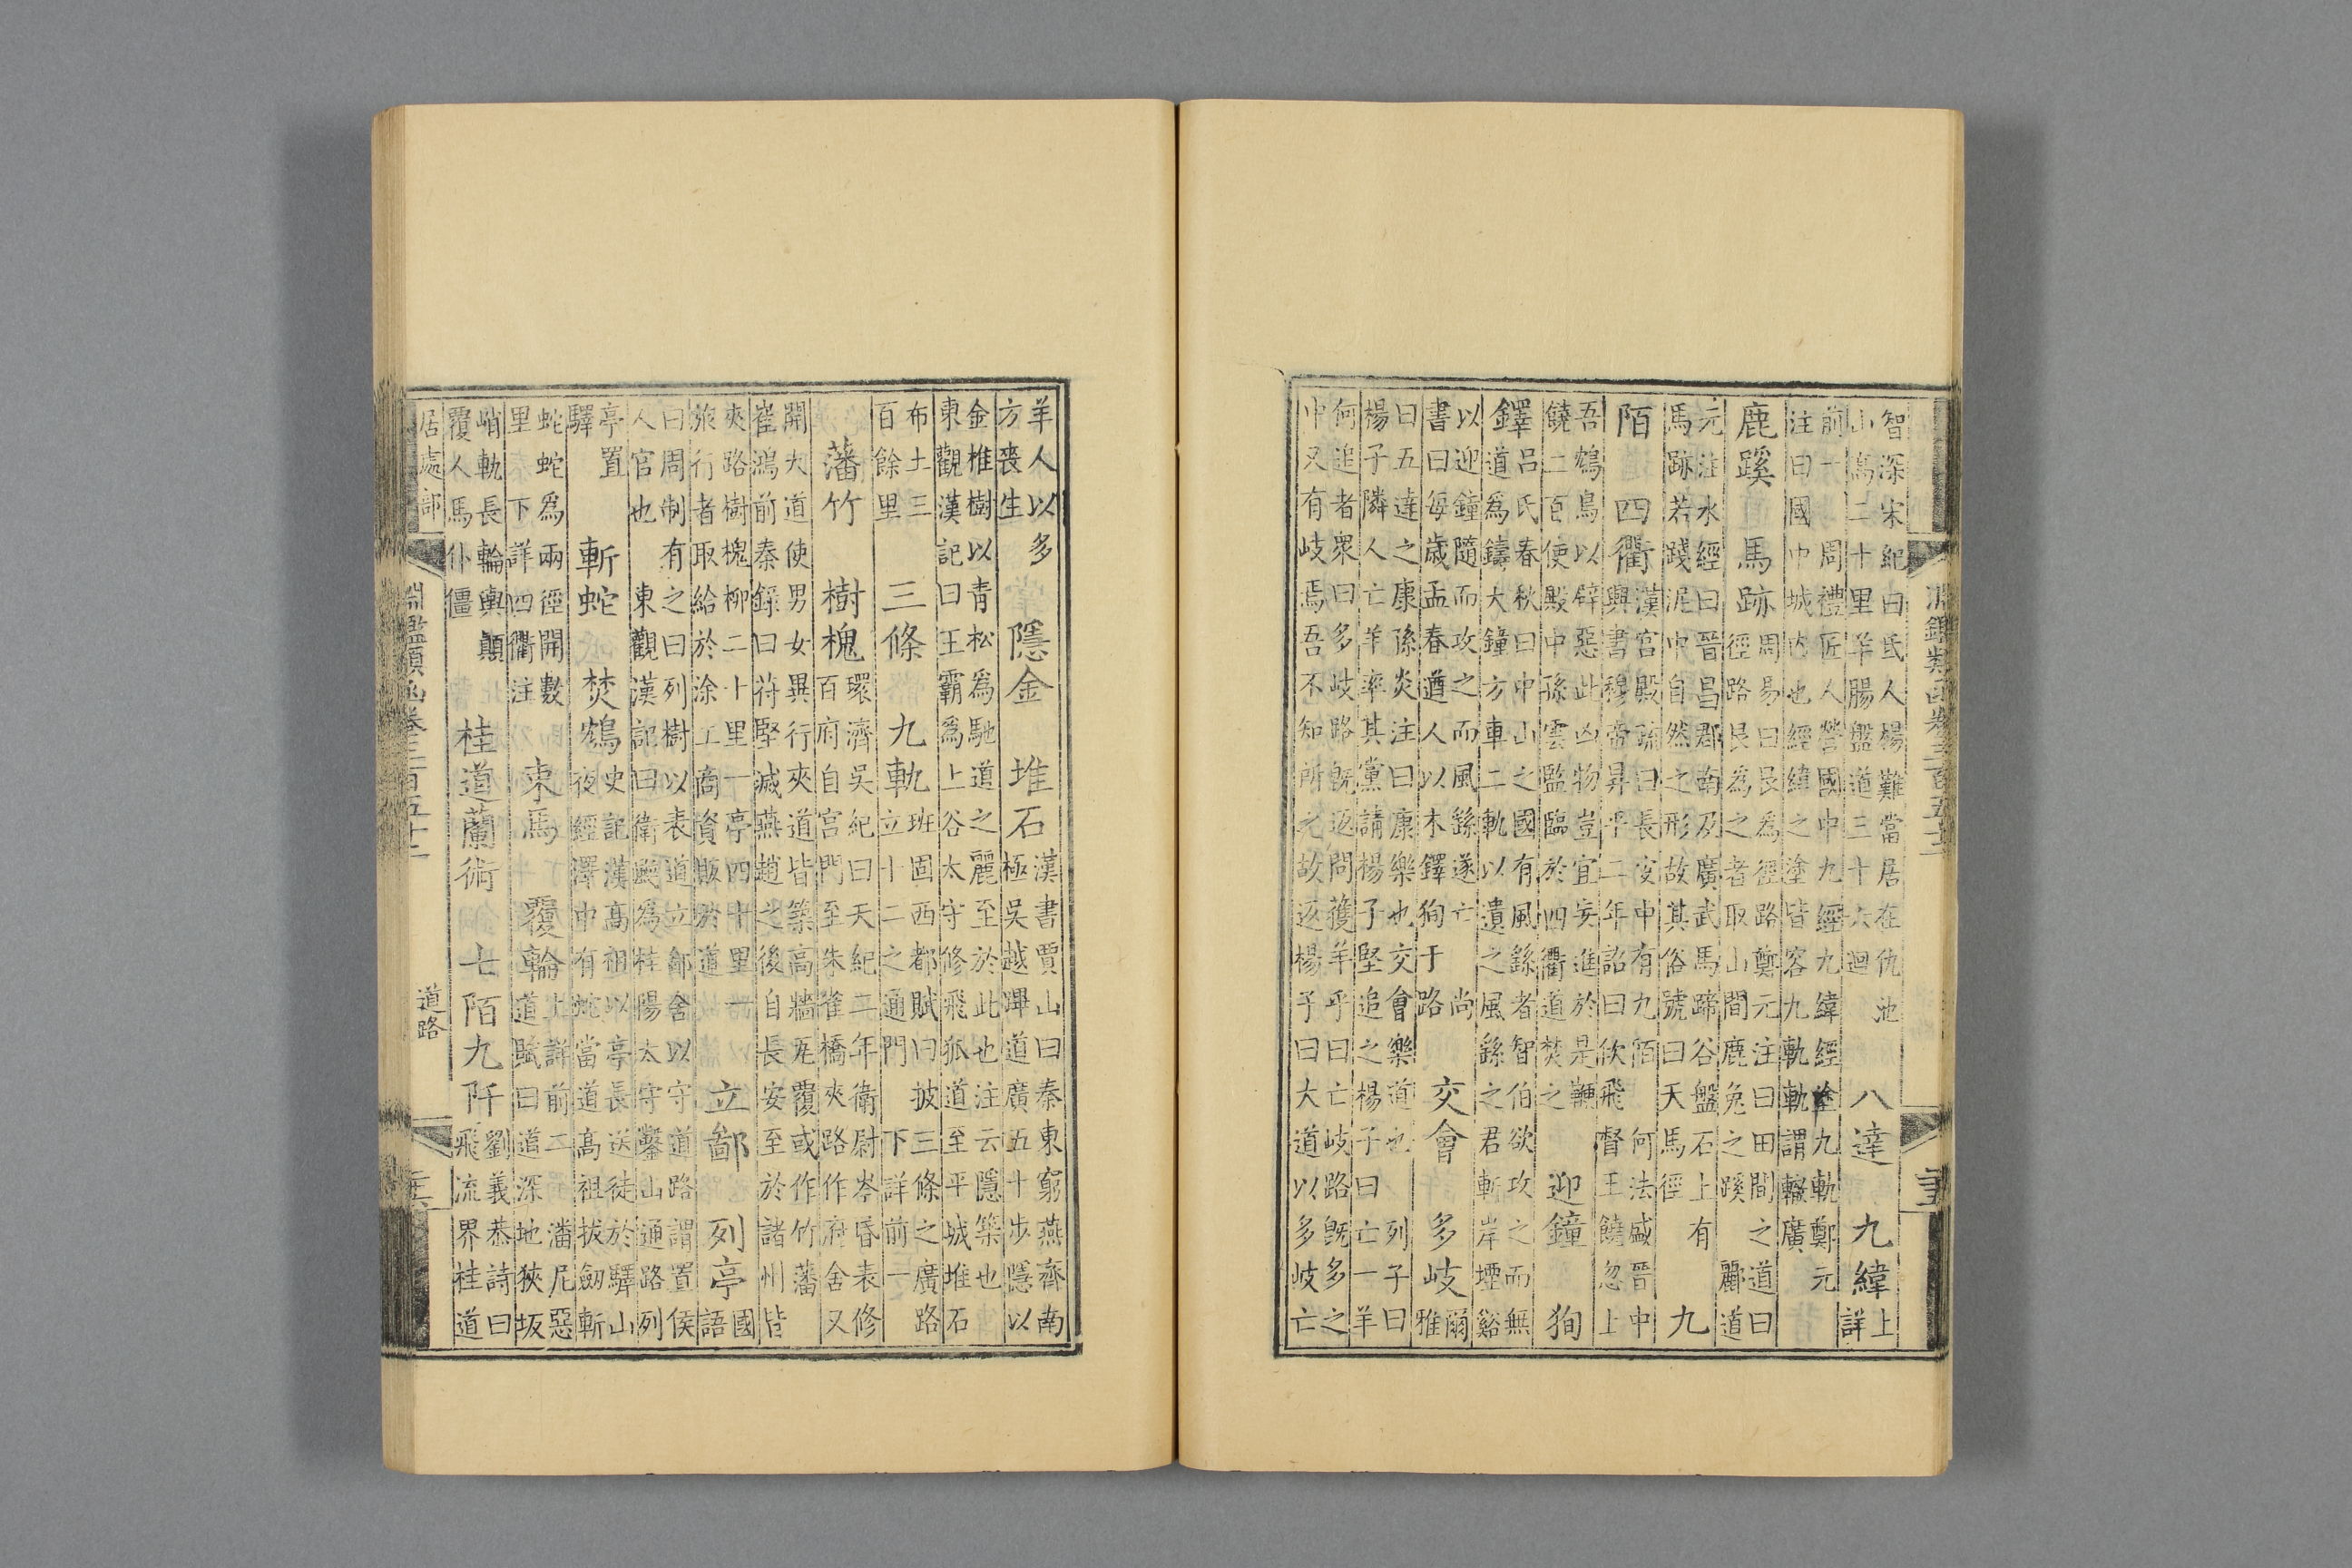 智深宋紀曰氐人楊難當居在仇池
山高二十里羊腸盤道三十六迴
八達
九緯
上
詳
前一周禮匠人營國中九經九緯經塗九軌鄭元
注曰國中城內也經緯之塗皆容九軌軌謂轍廣
鹿蹊
馬跡
周易曰艮為徑路鄭元注曰田間之道曰
徑路艮為之者取山間鹿兔之蹊
酈道
元注水經曰晉昌郡南及廣武馬蹄谷盤石上有
馬跡若踐泥中自然之形故其俗號曰天馬徑
九
陌
四衢
漢宮殿疏曰長安中有九陌
何法盛晉中
興書穆帝昇平二年詔曰佽飛督王饒忽上
吾鴆鳥以辟惡此凶物豈宜妄進於是鞭
饒二百使殿中孫雲監臨於四衢道焚之
迎鐘
狥
鐸
呂氏春秋曰中山之國有風繇者智伯欲攻之而無
道為鑄大鐘方車二軌以遺之風繇之君斬岸堙谿
以迎鐘隨而攻之而風繇遂亡
尚
書曰每歲孟春遒人以木鐸狥于路
交會
多岐
爾
雅
曰五達之康孫炎注曰康樂也交會樂道也
列子曰
楊子隣人亡羊率其黨請楊子堅追之楊子曰亡一羊
何追者眾曰多岐路既返問獲羊乎曰亡岐路既多之
中又有岐焉吾不知所之故返楊子曰大道以多岐亡
羊人以多
方喪生
隱金
堆石
漢書賈山曰秦東窮燕齊南
極吳越蹕道廣五十步隱以
金椎樹以青松為馳道之麗至於此也注云隱築也
東觀漢記曰王霸為上谷太守修飛狐道至平城堆石
布土三
百餘里
三條
九軌
班固西都賦曰披三條之廣路
立十二之通門
下詳前一
藩竹
樹槐
環濟吳紀曰天紀二年衛尉岑昏表修
百府自宮門至朱雀橋夾路作府舍又
開大道使男女異行夾道皆築高牆瓦覆或作竹藩
崔鴻前秦錄曰苻堅滅燕趙之後自長安至於諸州皆
夾路樹槐柳二十里一亭四十里一
旅行者取給於涂工商資販於道
立鄙
列亭
國
語
曰周制有之曰列樹以表道立鄙舍以守道路謂置侯
人官也
東觀漢記曰衛颯為桂陽太守鑿山通路列
亭置
驛
斬蛇
焚鴆
史記漢高祖以亭長送徒於驪山
夜經澤中有蛇當道高祖拔劒斬
蛇蛇為兩徑開數
里下詳四衢注
束馬
覆輪
上詳前二
潘尼惡
道賦曰道深地狹坂
峭軌長輪輿顛
覆人馬仆僵
桂道蘭術
七陌九阡
劉義恭詩曰
飛流界桂道
居處部
淵鑑類函卷三百五十二
道路